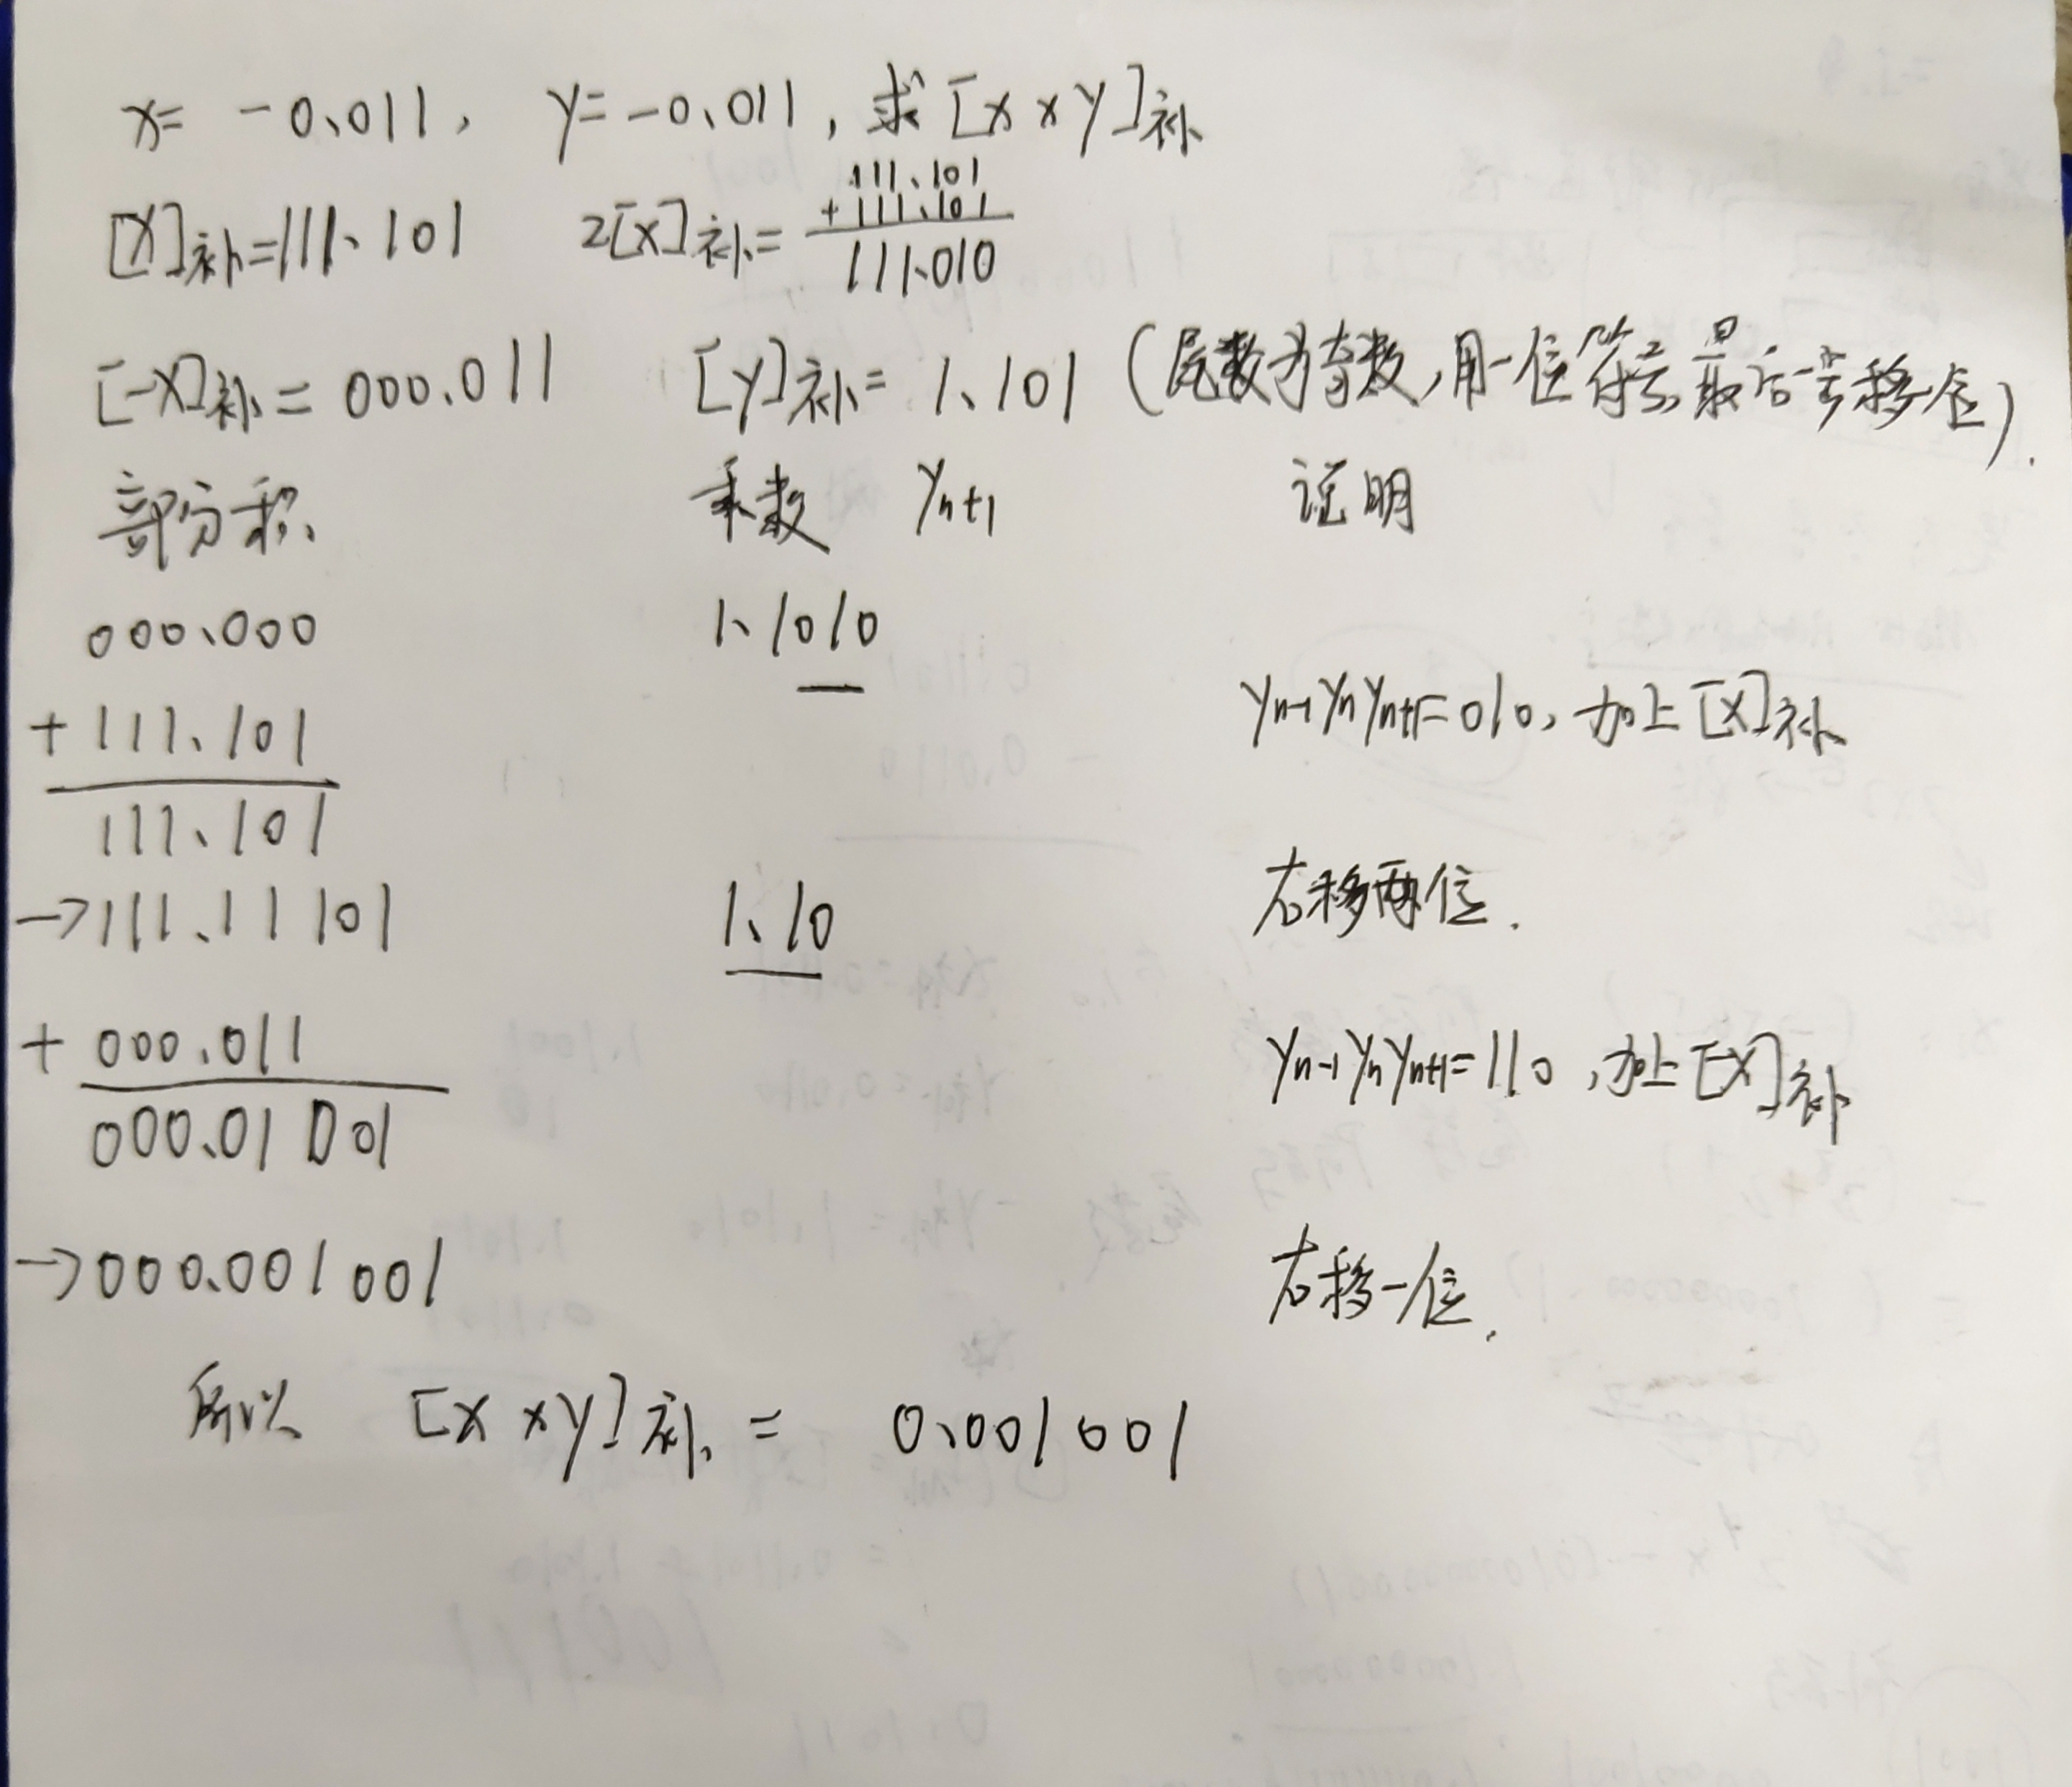 x= -0.011, y=-0.011, 求[x×y]补
111.101
[X]补=111.101 2[X]补= +111.101
111.010
[-X]补=000.011 [y]补=1.101 (尾数为奇数,用一位符号,最后一步移一位).
部分积 乘数 yn+1 说明
000.000 1.1010
+111.101 yn-1ynyn+1=010, 加上[X]补
111.101
→111.11101 1.10 右移两位.
+000.011 yn-1ynyn+1=110,加上[-X]补
000.01001
→000.001001 右移一位.
所以 [x×y]补= 0.001001